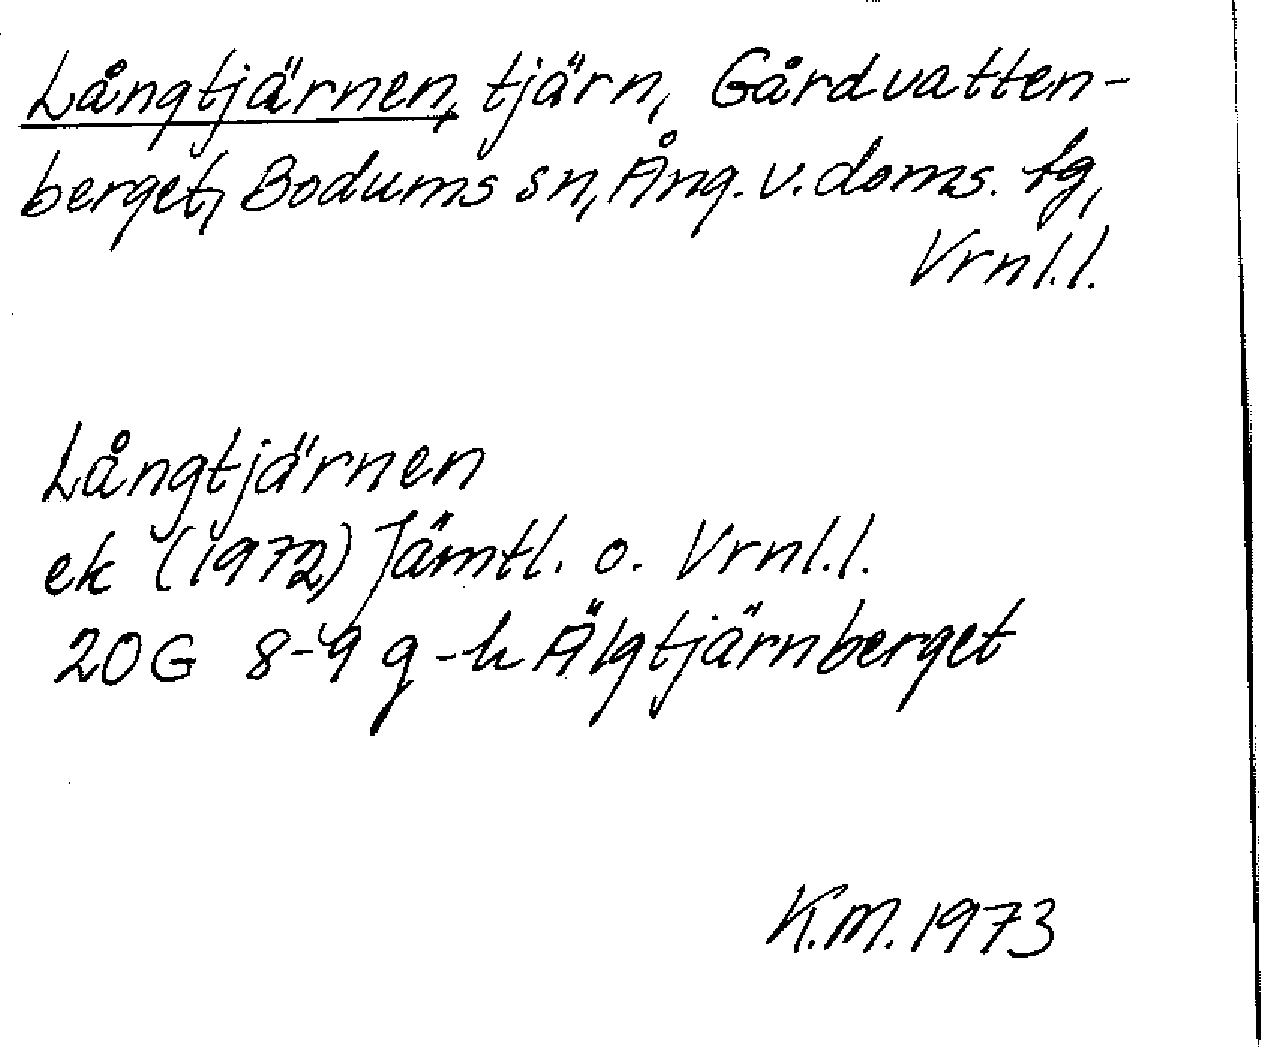 Långtjärnen, tjärn, Gårdvatten-
berget, Bodums sn, Ång. v. doms. tg,
Vrnl.l.
Långtjärnen
ek (1972) Jämtl. o. Vrnl.l.
20G 8-9 g-h Älgtjärnberget
K.M. 1973